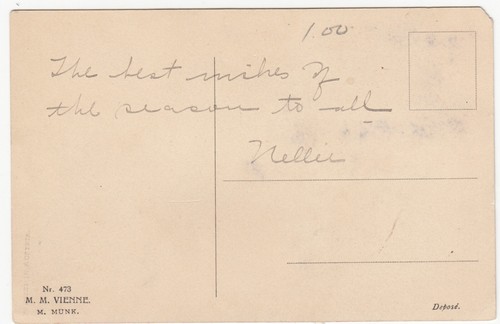 1.00
The best wishes of
the season to all
Nellie
Nr. 473
M. M. VIENNE.
M. MUNK.
Deposé.